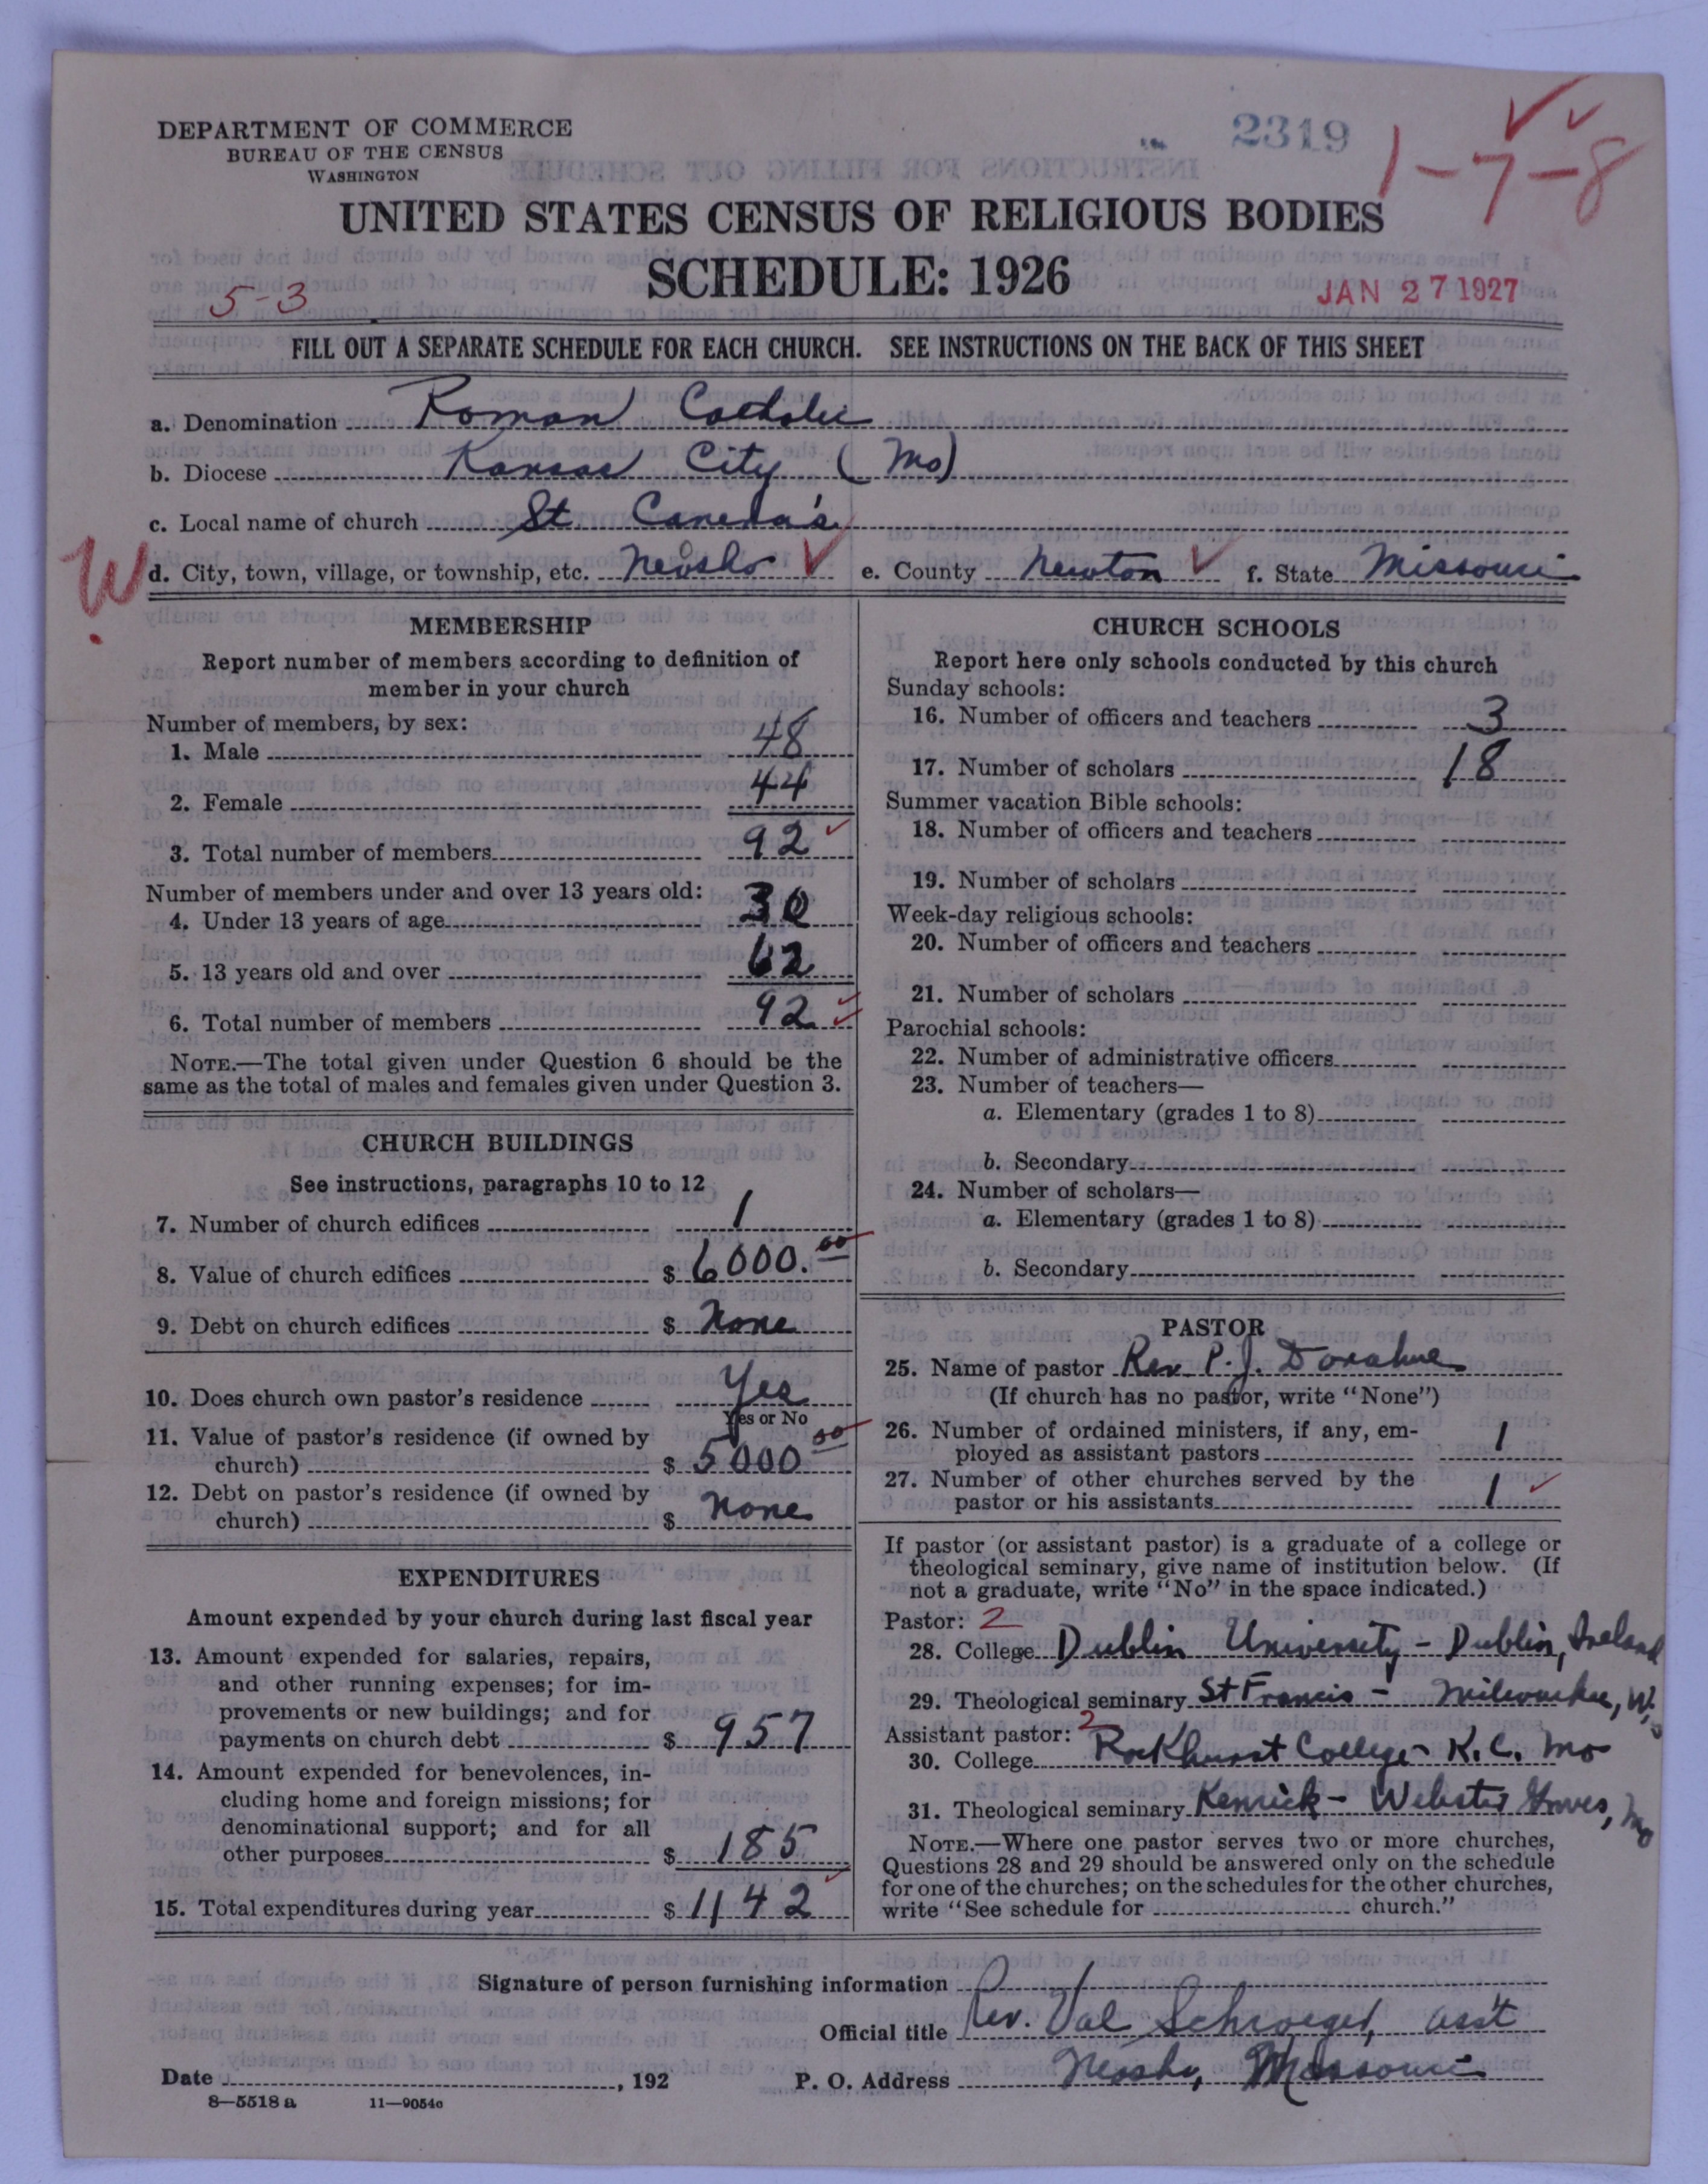 DEPARTMENT OF COMMERCE
BUREAU OF THE CENSUS
WASHINGTON
2319
1-7-8
UNITED STATES CENSUS OF RELIGIOUS BODIES
SCHEDULE: 1926
5-3
JAN 27 1927
FILL OUT A SEPARATE SCHEDULE FOR EACH CHURCH. SEE INSTRUCTIONS ON THE BACK OF THIS SHEET
a. Denomination Roman Catholic
b. Diocese Kansas City (Mo)
c. Local name of church St. Canera's
W
d. City, town, village, or township, etc. Neosho e. County Newton f. State Missouri
MEMBERSHIP
Report number of members according to definition of
member in your church
Number of members, by sex:
1. Male 48
2. Female 44
3. Total number of members 92
Number of members under and over 13 years old:
4. Under 13 years of age 30
5. 13 years old and over 62
6. Total number of members 92
NOTE.—The total given under Question 6 should be the
same as the total of males and females given under Question 3.
CHURCH BUILDINGS
See instructions, paragraphs 10 to 12
7. Number of church edifices 1
8. Value of church edifices $ 6000.00
9. Debt on church edifices $ None
10. Does church own pastor's residence Yes
Yes or No
11. Value of pastor's residence (if owned by
church) $ 5000 00
12. Debt on pastor's residence (if owned by
church) $ None
EXPENDITURES
Amount expended by your church during last fiscal year
13. Amount expended for salaries, repairs,
and other running expenses; for im-
provements or new buildings; and for
payments on church debt $ 957
14. Amount expended for benevolences, in-
cluding home and foreign missions; for
denominational support; and for all
other purposes $ 185
15. Total expenditures during year $ 1142
CHURCH SCHOOLS
Report here only schools conducted by this church
Sunday schools:
16. Number of officers and teachers 3
17. Number of scholars 18
Summer vacation Bible schools:
18. Number of officers and teachers
19. Number of scholars
Week-day religious schools:
20. Number of officers and teachers
21. Number of scholars
Parochial schools:
22. Number of administrative officers
23. Number of teachers—
a. Elementary (grades 1 to 8)
b. Secondary
24. Number of scholars—
a. Elementary (grades 1 to 8)
b. Secondary
PASTOR
25. Name of pastor Rev. P. J. Donahue
(If church has no pastor, write "None")
26. Number of ordained ministers, if any, em-
ployed as assistant pastors 1
27. Number of other churches served by the
pastor or his assistants 1
If pastor (or assistant pastor) is a graduate of a college or
theological seminary, give name of institution below. (If
not a graduate, write "No" in the space indicated.)
Pastor: 2
28. College Dublin University - Dublin, Ireland
29. Theological seminary St Francis - Milwaukee, Wis
Assistant pastor: 2
30. College Rockhurst College - K.C. Mo
31. Theological seminary Kenrick - Webster Groves, Mo
NOTE.—Where one pastor serves two or more churches,
Questions 28 and 29 should be answered only on the schedule
for one of the churches; on the schedules for the other churches,
write "See schedule for church."
Signature of person furnishing information
Official title Rev. Val Schroeger, ass't
Date , 192 P. O. Address Neosho, Missouri
8—5518 a 11—9054c